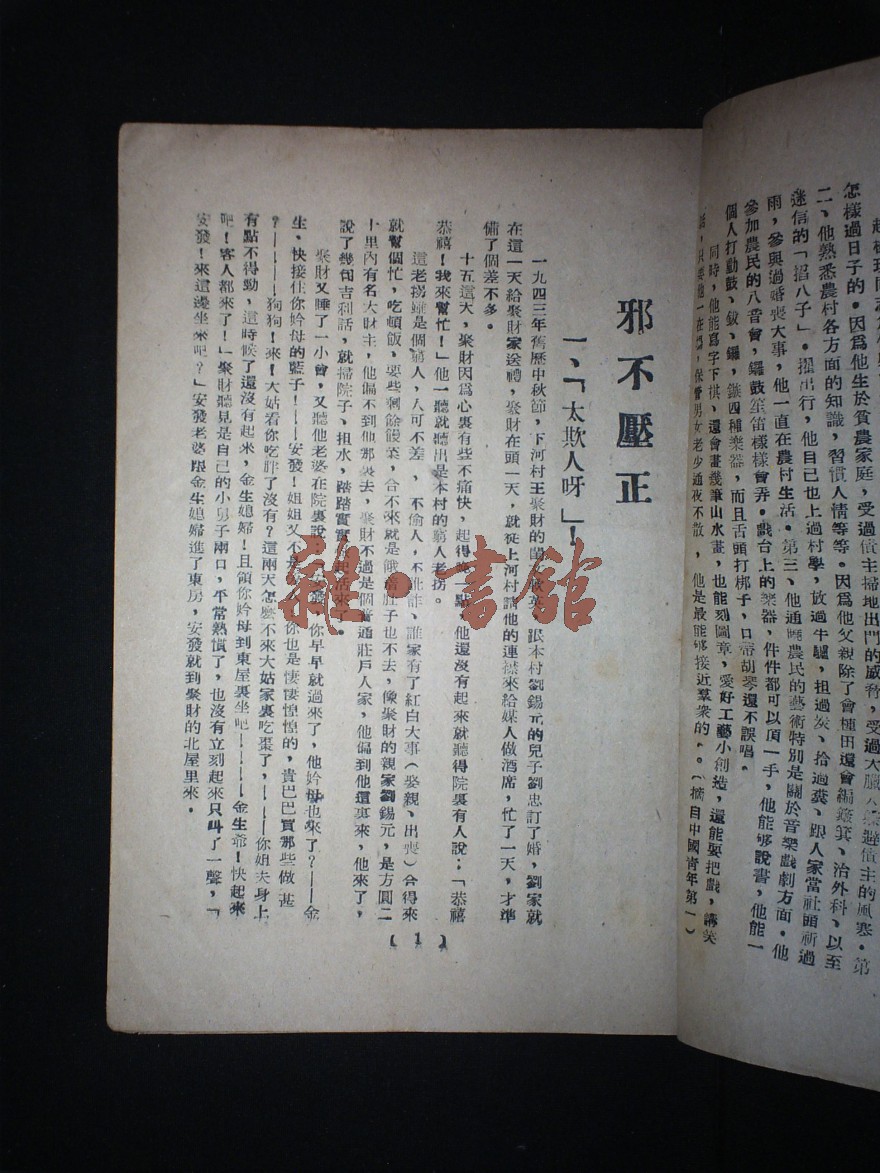 怎樣過日子的。因爲他生於貧農家庭,受過債主掃地出門的威脅,受過大臘
二、他熟悉農村各方面的知識,習慣人情等等。因爲他父親除了會種田還會編簸箕、治外科、以至
迷信的「掐八子」。擺出行,他自己也上過村學,放過牛驢,担過炭、拾過糞、跟人家當社頭祈過
雨,參與過婚喪大事,他一直在農村生活。第三、他通曉農民的藝術特別是關於音樂戲劇方面。他
參加農民的八音會,鑼鼓笙笛樣樣會弄。戲台上的樂器,件件都可以頂一手,他能够說書,他能一
個人打動鼓、鈸、鑼、鏃四種樂器,而且舌頭打梆子,口帶胡琴還不誤唱。
同時,他能寫字下棋,還會畫幾筆山水畫,也能刻圖章,愛好工藝小創造,還能要把戲,講笑
話,只要他一在場,保管男女老少通夜不散,他是最能够接近羣衆的。(摘自中國青年第一)
邪不壓正
一、「太欺人呀」!
一九四三年舊歷中秋節,下河村王聚財的閨女軟英,跟本村劉錫元的兒子劉忠訂了婚,劉家就
在這一天給聚財家送禮,聚財在頭一天,就從上河村請他的連襟來給媒人做酒席,忙了一天,才準
備了個差不多。
十五這天,聚財因爲心裏有些不痛快,起得晚一點,他還沒有起來就聽得院裏有人說:「恭禧
恭禧!我來幫忙!」他一聽就聽出是本村的窮人老拐。
這老拐雖是個窮人,人可不差, 不偷人,不訛詐、誰家有了紅白大事(娶親、出喪)合得來
就幫個忙,吃頓飯、要些剩餘饅菜,合不來就是餓着肚子也不去,像聚財的親家劉錫元,是方圓二
十里內有名大財主,他偏不到他那裏去、聚財不過是個普通莊戶人家,他偏到他這裏來,他來了,
說了幾句吉利話,就掃院子、担水,踏踏實實做起活來了。
聚財又睡了一小會,又聽他老婆在院裏說:安發,你早早就過來了,他妗母也來了?——金
生、快接住你妗母的藍子!——安發!姐姐又不是 你也是悽悽惶惶的,貴巴巴買那些做 甚
?————狗狗!來!大姑看你吃胖了沒有?這兩天怎麽不來大姑家裏吃棗了,——你姐夫身上
有點不得勁,這時候了還沒有起來,金生媳婦!且領你妗母到東屋裏坐吧!——金生爺!快起來
吧!客人都來了!」聚財聽見是自己的小舅子兩口,平常熟慣了,也沒有立刻起來只叫了一聲,「
安發!來這邊坐來吧?」安發老婆跟金生媳婦進了東房,安發就到聚財的北屋里來。
(1)
雜·書館